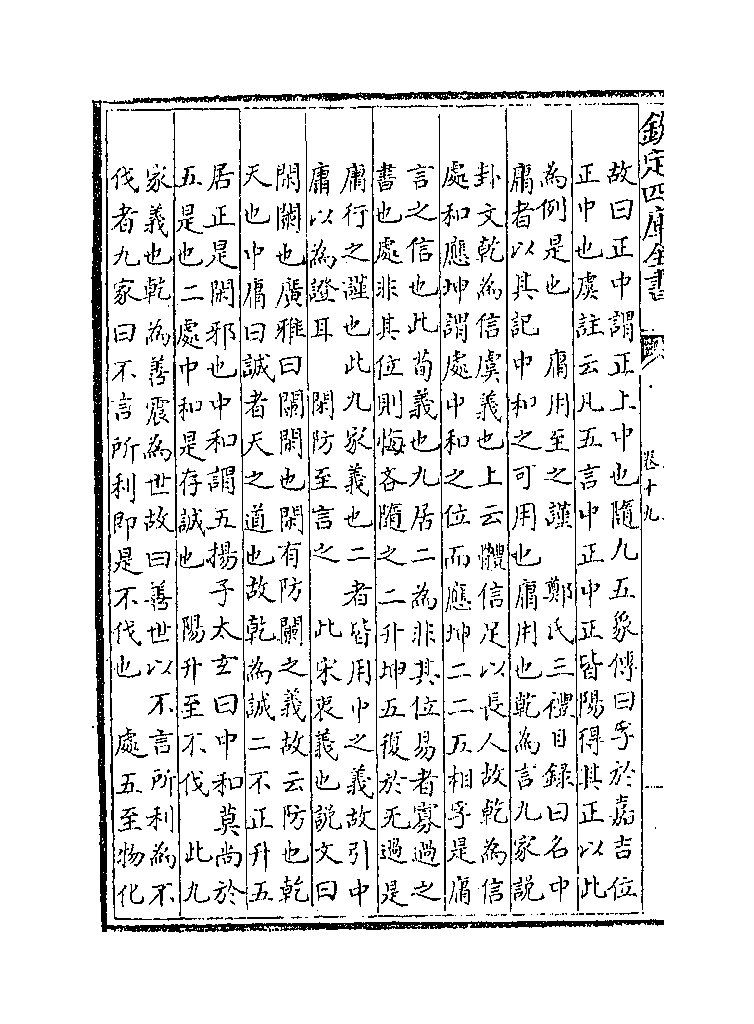 欽定四庫全書
卷十九
故曰正中謂正上中也隨九五象傳曰孚於嘉吉位
正中也虞註云凡五言中正中正皆陽得其正以此
為例是也　庸用至之謹　鄭氏三禮目錄曰名中
庸者以其記中和之可用也庸用也乾為言九家說
卦文乾為信虞義也上云體信足以長人故乾為信
處和應坤謂處中和之位而應坤二二五相孚是庸
言之信也此荀義也九居二為非其位易者寡過之
書也處非其位則悔吝隨之二升坤五復於无過是
庸行之謹也此九家義也二者皆用中之義故引中
庸以為證耳　閑防至言之　此宋衷義也說文曰
閑闌也廣雅曰闌閑也閑有防闌之義故云防也乾
天也中庸曰誠者天之道也故乾為誠二不正升五
居正是閑邪也中和謂五揚子太玄曰中和莫尚於
五是也二處中和是存誠也　陽升至不伐　此九
家義也乾為善震為世故曰善世以不言所利為不
伐者九家曰不言所利即是不伐也　處五至物化